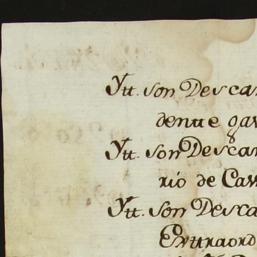 Ytt. son Desca
denue ga
Ytt. son Desca
rio de Cav
Ytt. son Desca
Extraord